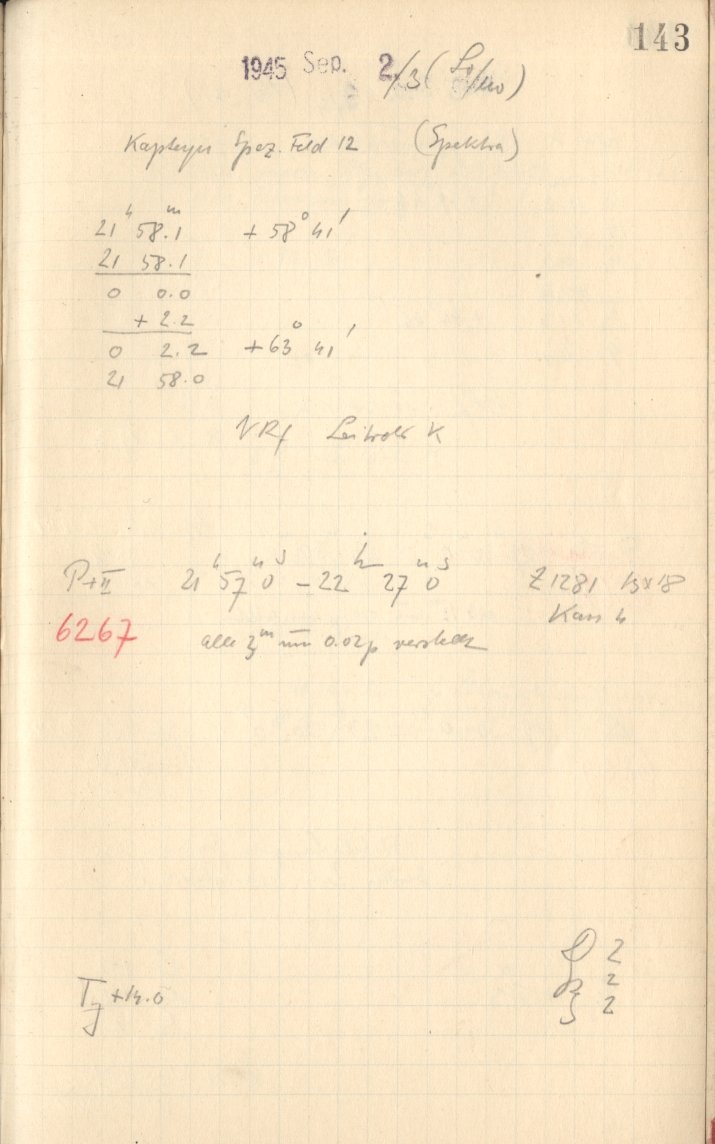 143
1945 Sep. 2/3 (
Kapteyn Spez. Feld 12 (Spektra)
21ʰ 58.1ᵐ +58° 41′
21 58.1
0 0.0
+ 2.2
0 2.2 +63° 41′
21 58.0
Leitrohr K
P+II 21ʰ 57ᵐ 0ˢ – 22ʰ 27ᵐ 0ˢ Z1281 13×18
6267 alle 3ᵐ um 0.02p verstellt
+14.0
2
2
2